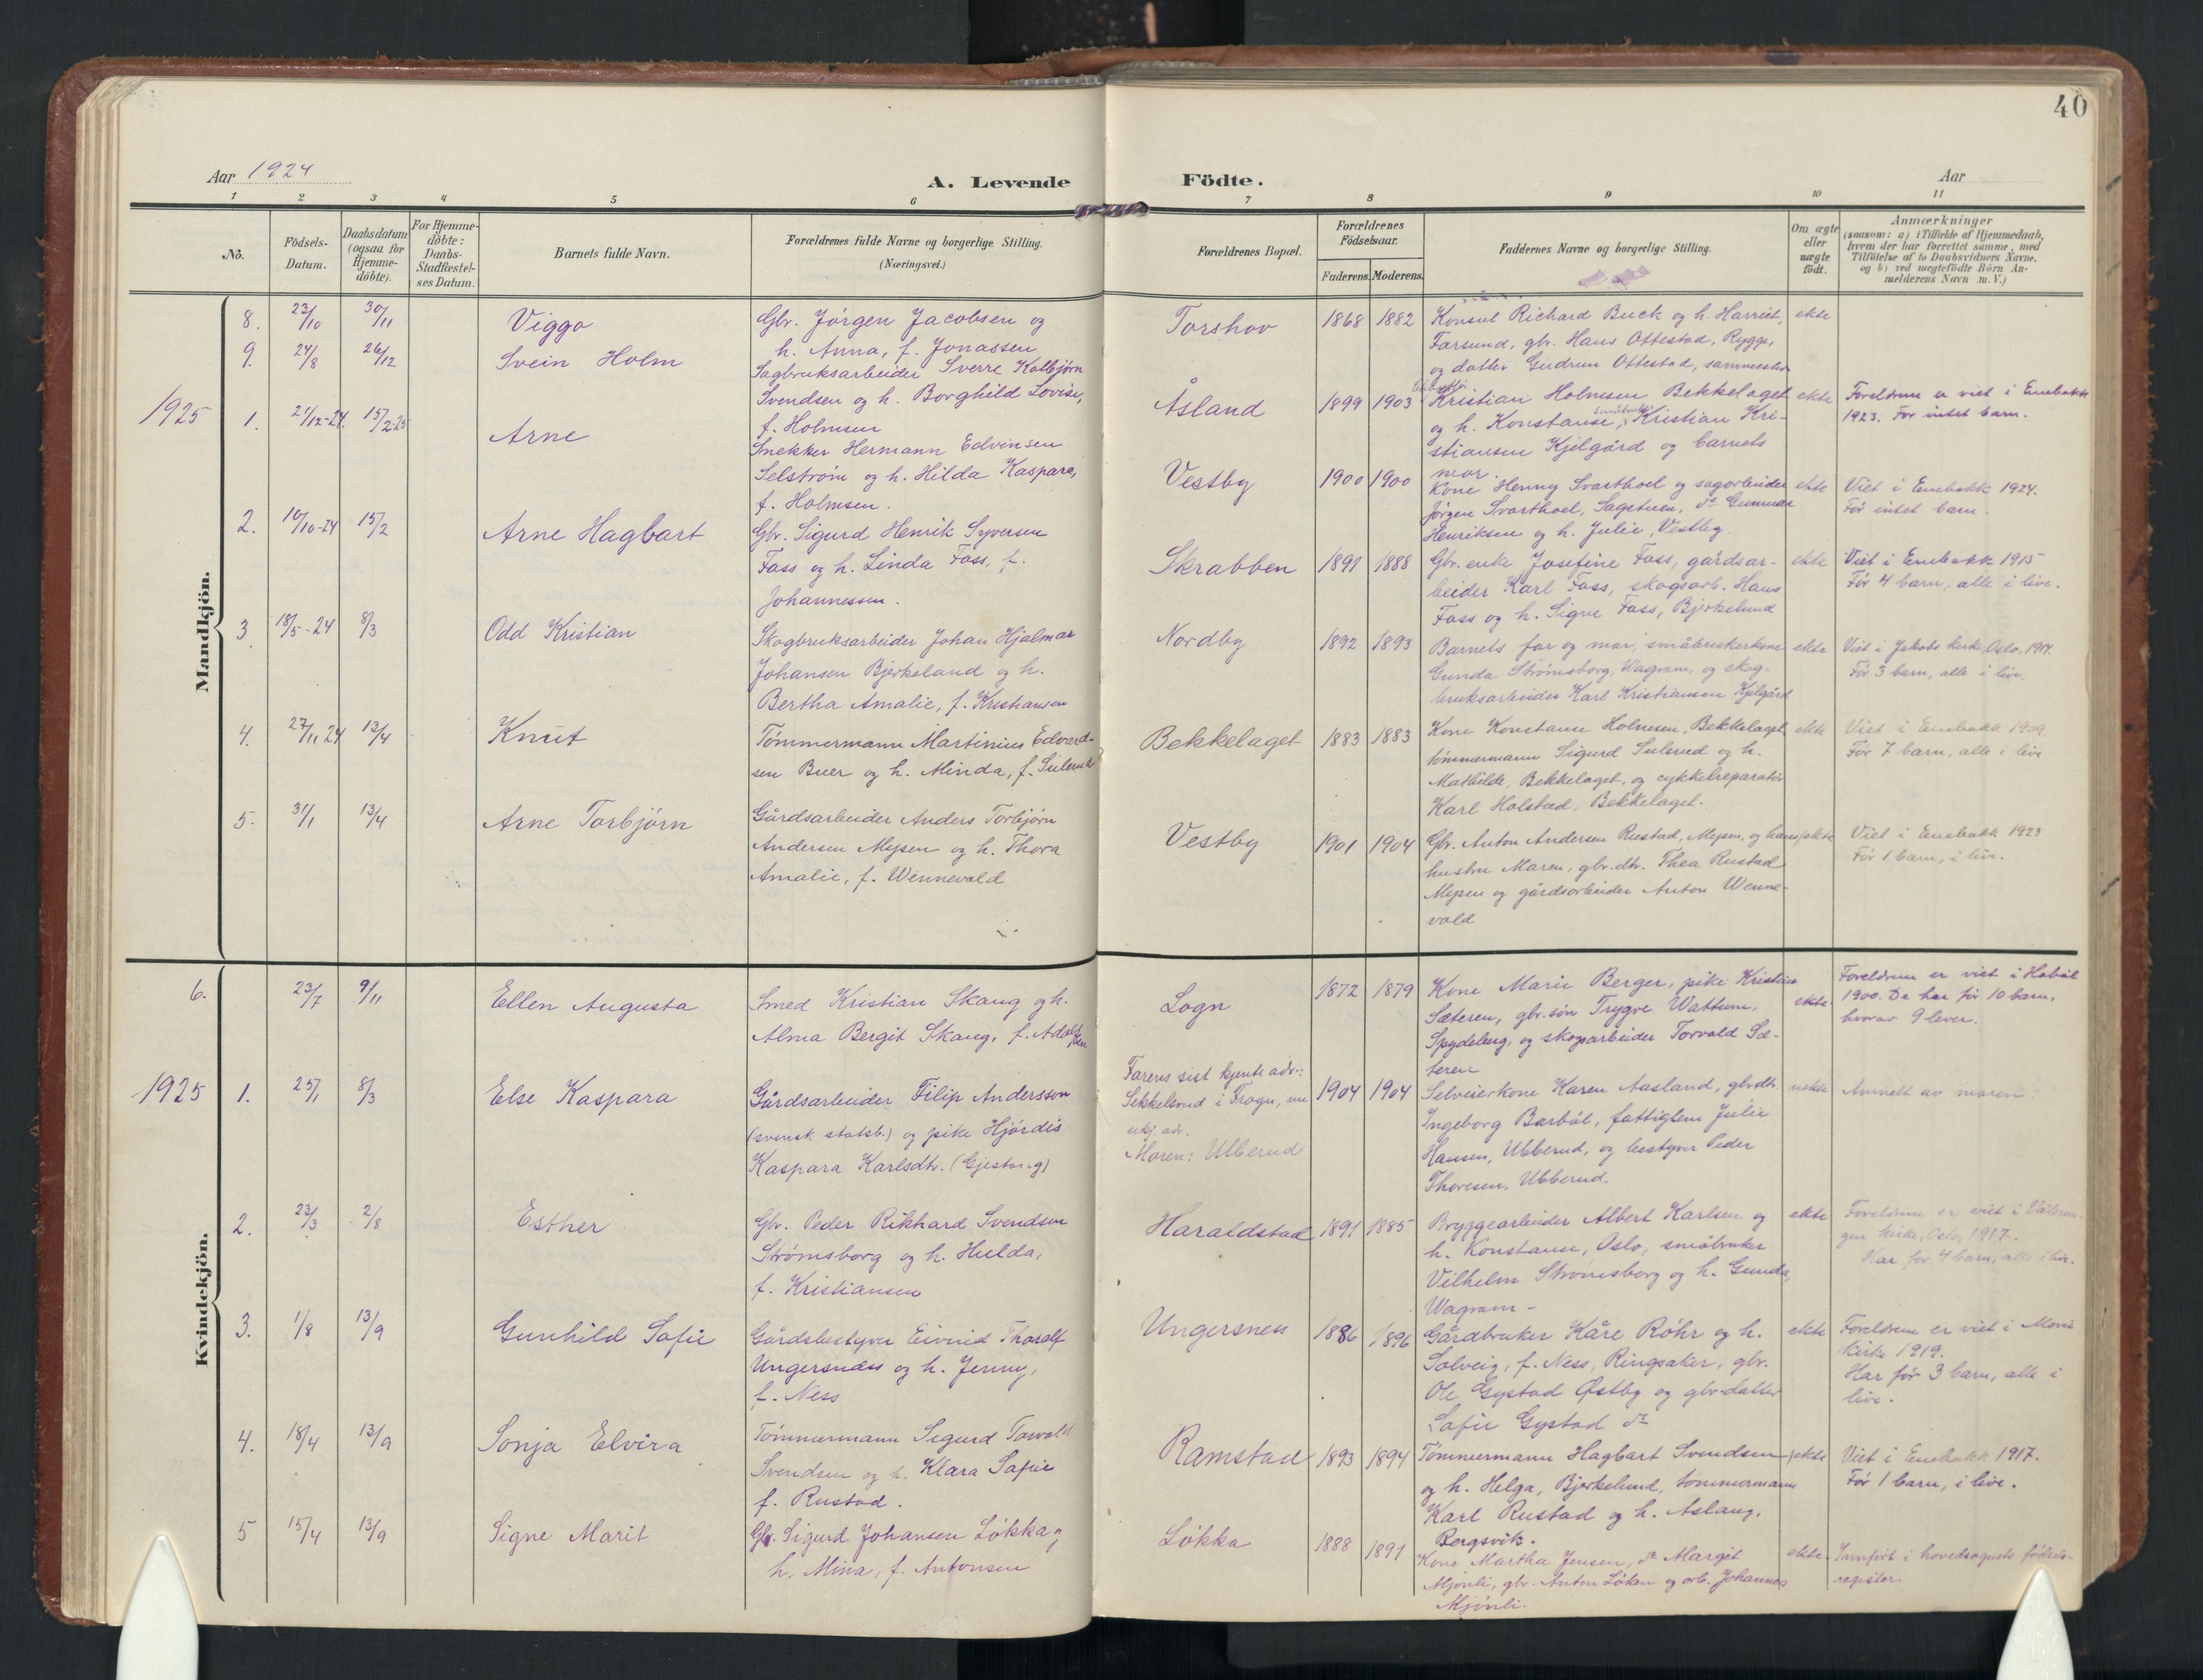 40
Aar 1924
A. Levende Födte.
Aar
1 2 3 4 5 6 7 8 9 10 11
No.
Födsels-
Datum.
Daabsdatum
(ogsaa for
Hjemme-
döbte).
For Hjemme-
döbte:
Daabs-
Stadfæstel-
ses Datum.
Barnets fulde Navn.
Forældrenes fulde Navne og borgerlige Stilling.
(Næringsvei.)
Forældrenes Bopæl.
Forældrenes
Födselsaar.
Faderens. Moderens.
Faddernes Navne og borgerlige Stilling.
Om ægte
eller
uægte
födt.
Anmærkninger
(saasom: a) i Tilfælde af Hjemmedaab,
hvem der har forrettet samme, med
Tilföielse af to Daabsvidners Navne,
og b) ved uægtefödte Börn An-
melderens Navn m. V.)
Mandkjön.
8. 23/10 30/11 Viggo
Gbr. Jörgen Jacobsen og
h. Anna, f. Jonassen
Torshov 1868 1882
Konsul Richard Buck og h. Harriet,
Farsund, gbr. Hans Ottestad, Rygge,
og datter Gudrun Ottestad, sammesteds
ekte
9. 24/8 26/12 Svein Holm
Sagbruksarbeider Sverre Kolbjörn
Svendsen og h. Borghild Lovise,
f. Holmsen
Åsland 1899 1903
Kristian Holmsen Bekkelaget
og h. Konstanse, småbruker Kristian Kri-
stiansen Kjelgård og barnets
mor.
ekte
Foreldrene er viet i Enebakk
1923. Før intet barn.
1925
1. 21/12-24 15/2-25 Arne
Snekker Hermann Edvinsen
Selström og h. Hilda Kaspara,
f. Holmsen.
Vestby 1900 1900
Kone Henny Svarthoel og sagarbeider
Jørgen Svarthoel, Sagstuen, do Gunnar
Henriksen og h. Julie, Vestby.
ekte
Viet i Enebakk 1924.
Før intet barn.
2. 10/10-24 15/2 Arne Hagbart
Gbr. Sigurd Henrik Syversen
Foss og h. Linda Foss, f.
Johannessen.
Skrabben 1891 1888
Gbr. enke Josefine Foss, gårdsar-
beider Karl Foss, skogsarb. Hans
Foss og h. Signe Foss, Bjerkelund
ekte
Viet i Enebakk 1915
Før 4 barn, alle i live.
3 18/5-24 8/3 Odd Kristian
Skogbruksarbeider Johan Hjalmar
Johansen Bjerkeland og h.
Bertha Amalie, f. Kristiansen
Nordby 1892 1893
Barnets far og mor, småbrukerkone
Gunda Strömsborg, Wagram, og skog-
bruksarbeider Karl Kristiansen Kjelgård
ekte
Viet i Jakobs kirke, Oslo,
Før 3 barn, alle i live.
4. 27/11 24 13/4 Knut
Tömmermann Martinius Edvard-
sen Buer og h. Minda, f. Sulerud
Bekkelaget 1883 1883
Kone Konstanse Holmsen, Bekkelaget,
tömmermann Sigurd Sulerud og h.
Mathilde, Bekkelaget, og cykkelreparatör
Karl Holstad, Bekkelaget.
ekte
Viet i Enebakk 1909.
Før 7 barn, alle i live
5. 31/1 13/4 Arne Torbjörn
Gårdsarbeider Anders Torbjörn
Andersen Mysen og h. Thora
Amalie, f. Wennevold
Vestby 1901 1904
Gbr. Anton Andersen Rustad, Mysen, og hans
hustru Maren, gbr.dtr. Thea Rustad
Mysen og gårdsarbeider Anton Wenne-
vold
ekte
Viet i Enebakk 1923
Før 1 barn, i live.
Kvindekjön.
6. 23/7 9/11 Ellen Augusta
Smed Kristian Skaug og h.
Alma Bergit Skaug, f. Adolfsen
Logn 1872 1879
Kone Marie Berger, pike Kristine
Sæteren, gbr.sön Trygve Wattum,
Spydeberg, og skogsarbeider Torvald Sæ-
teren
ekte.
Foreldrene er viet i Hobøl
1900. De har før 10 barn,
hvorav 9 lever.
1925
1. 25/1 8/3 Else Kaspara
Gårdsarbeider Filip Andersson
(svensk statsb.) og pike Hjördis
Kaspara Karlsdtr. (Gjestang)
Farens sist kjente adr.:
Sikkelsrud i Frogn, nu
ukj. adr.
Moren: Ubberud
1904 1904
Selveierkone Karen Aasland, gbrdtr.
Ingeborg Barböl, fattiglem Julie
Hansen, Ubberud, og bestyrer Peder
Thoresen, Ubberud.
uekte
Anmelt av moren.
2. 23/3 2/8 Esther
Gbr. Peder Rikhard Svendsen
Strömsborg og h. Hulda,
f. Kristiansen
Haraldstad 1891 1885
Bryggearbeider Albert Karlsen og
h. Konstanse, Oslo, småbruker
Vilhelm Strömsborg og h. Gunda,
Wagram-
ekte
Foreldrene er viet i Våleren-
gen kirke, Oslo, 1917.
Har før 4 barn, alle i live.
3. 1/8 13/9 Gunhild Sofie
Gårdsbestyrer Eivind Thoralf
Ungersness og h. Jenny,
f. Ness
Ungersness 1886 1896
Gårdbruker Kåre Röhr og h.
Solveig, f. Ness, Ringsaker, gbr.
Ole Gystad Østby og gbr-datter
Sofie Gystad do
ekte
Foreldrene er viet i Moss
kirke 1919.
Har før 3 barn, alle i
live.
4. 18/4 13/9 Sonja Elvira
Tömmermann Sigurd Torvald
Svendsen og h. Klara Sofie
f. Rustad.
Ramstad 1893 1894
Tömmermann Hagbart Svendsen
og h. Helga, Bjerkelund, tömmermann
Karl Rustad og h. Aslaug,
Bergsvik.
ekte
Viet i Enebakk 1917.
Før 1 barn, i live.
5 15/4 13/9 Signe Marit
Gbr. Sigurd Johansen Lökka og
h. Mina, f. Antonsen
Lökka 1888 1891
Kone Martha Jensen, do Margit
Mjönli, gbr. Anton Löken og arb. Johannes
Mjönli.
ekte.
Innført i hovedsognets födsels-
register.